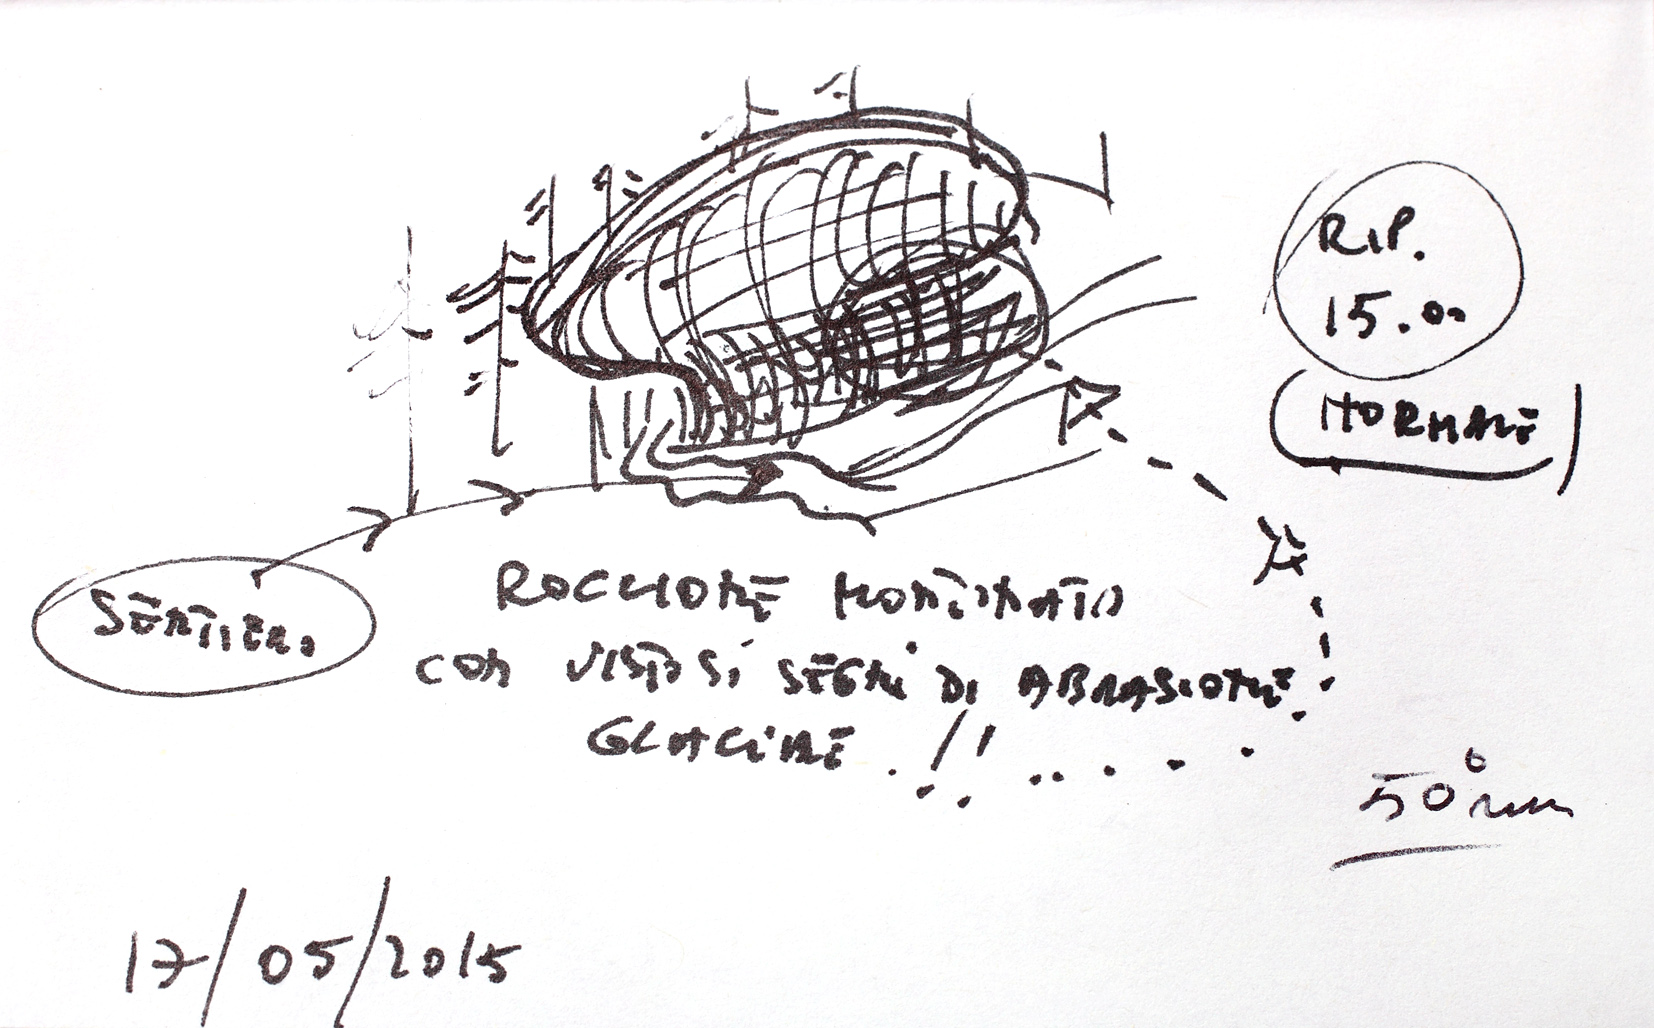 RIP.
15.00
NORMALE
SENTIERO
ROCCIONE MONTONATO
CON VISTOSI SEGNI DI ABRASIONE
GLACIALE . !! .. . . .
50 mm
17/05/2015